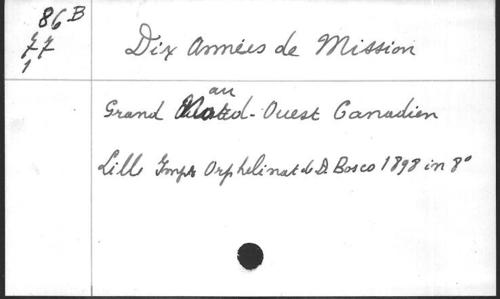 86 B
77
1
Dix Années de Mission
au
Grand Nord-Ouest Canadien
Lille Impr Orphelinat de D. Bosco 1898 in 8°